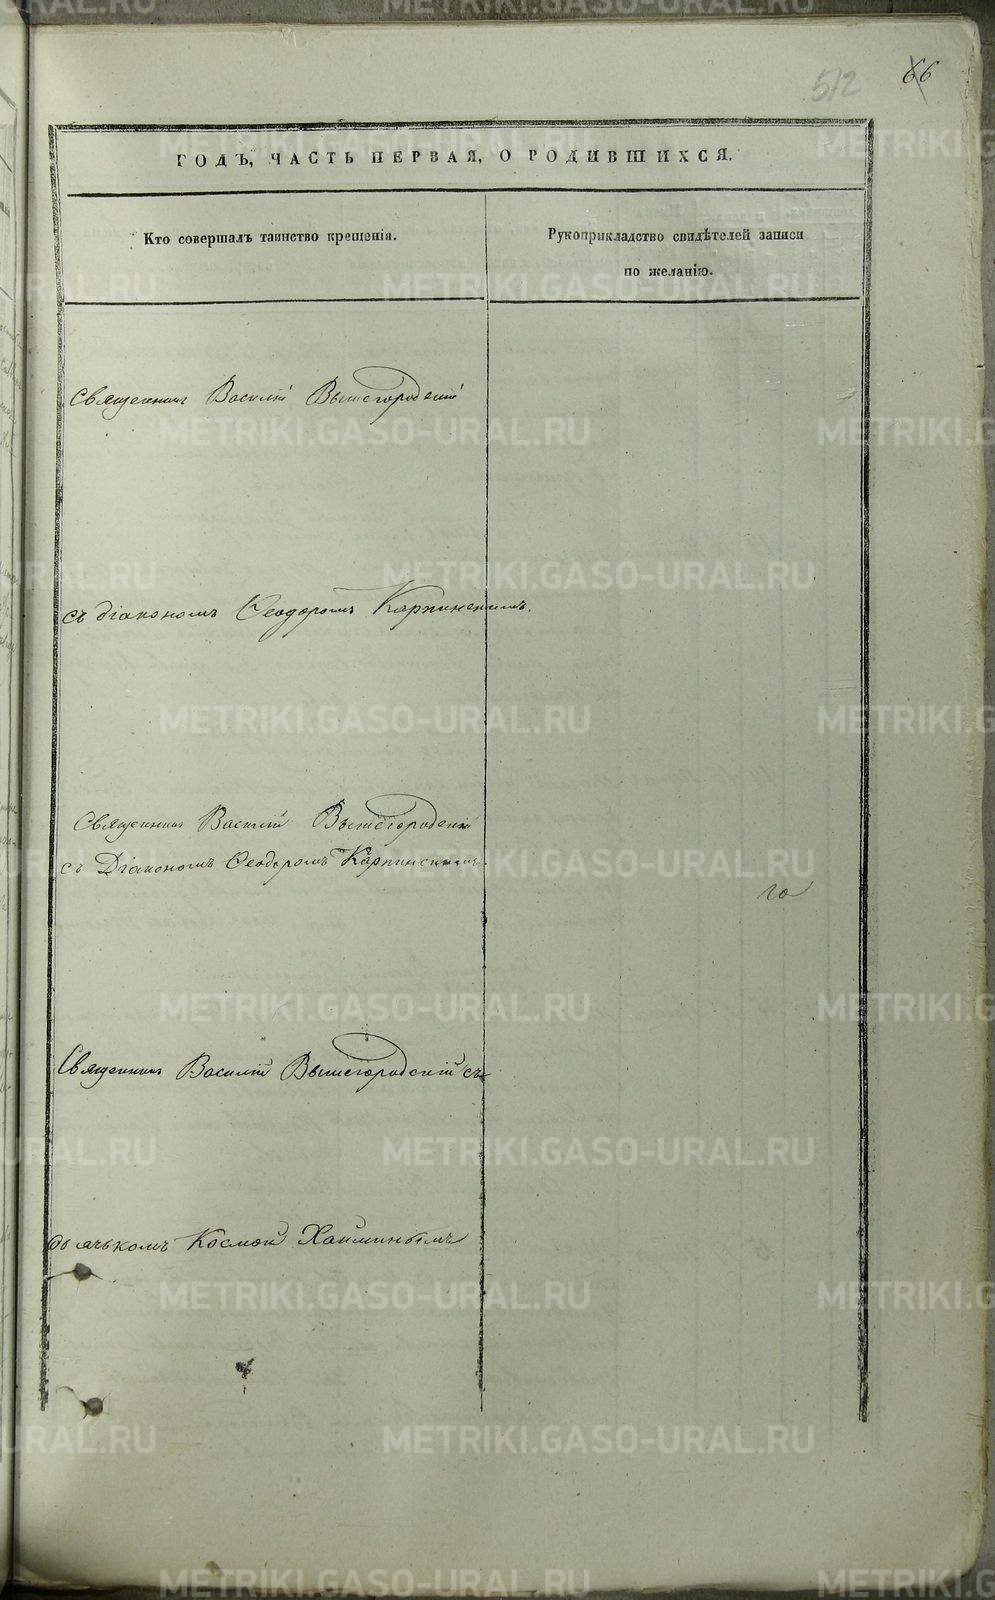 512
66
ГОДЪ, ЧАСТЬ ПЕРВАЯ, О РОДИВШИХСЯ.
Кто совершалъ таинство крещенія.
Рукоприкладство свидѣтелей записи
по желанію.
Священникъ Василій Вышегородскій
съ діакономъ Ѳеодоромъ Карпинскимъ.
Священникъ Василій Вышегородскій
съ Діакономъ Ѳеодоромъ Карпинскимъ
го
Священникъ Василій Вышегородскій съ
дьячькомъ Космой Хайминымъ
METRIKI.GASO-URAL.RU